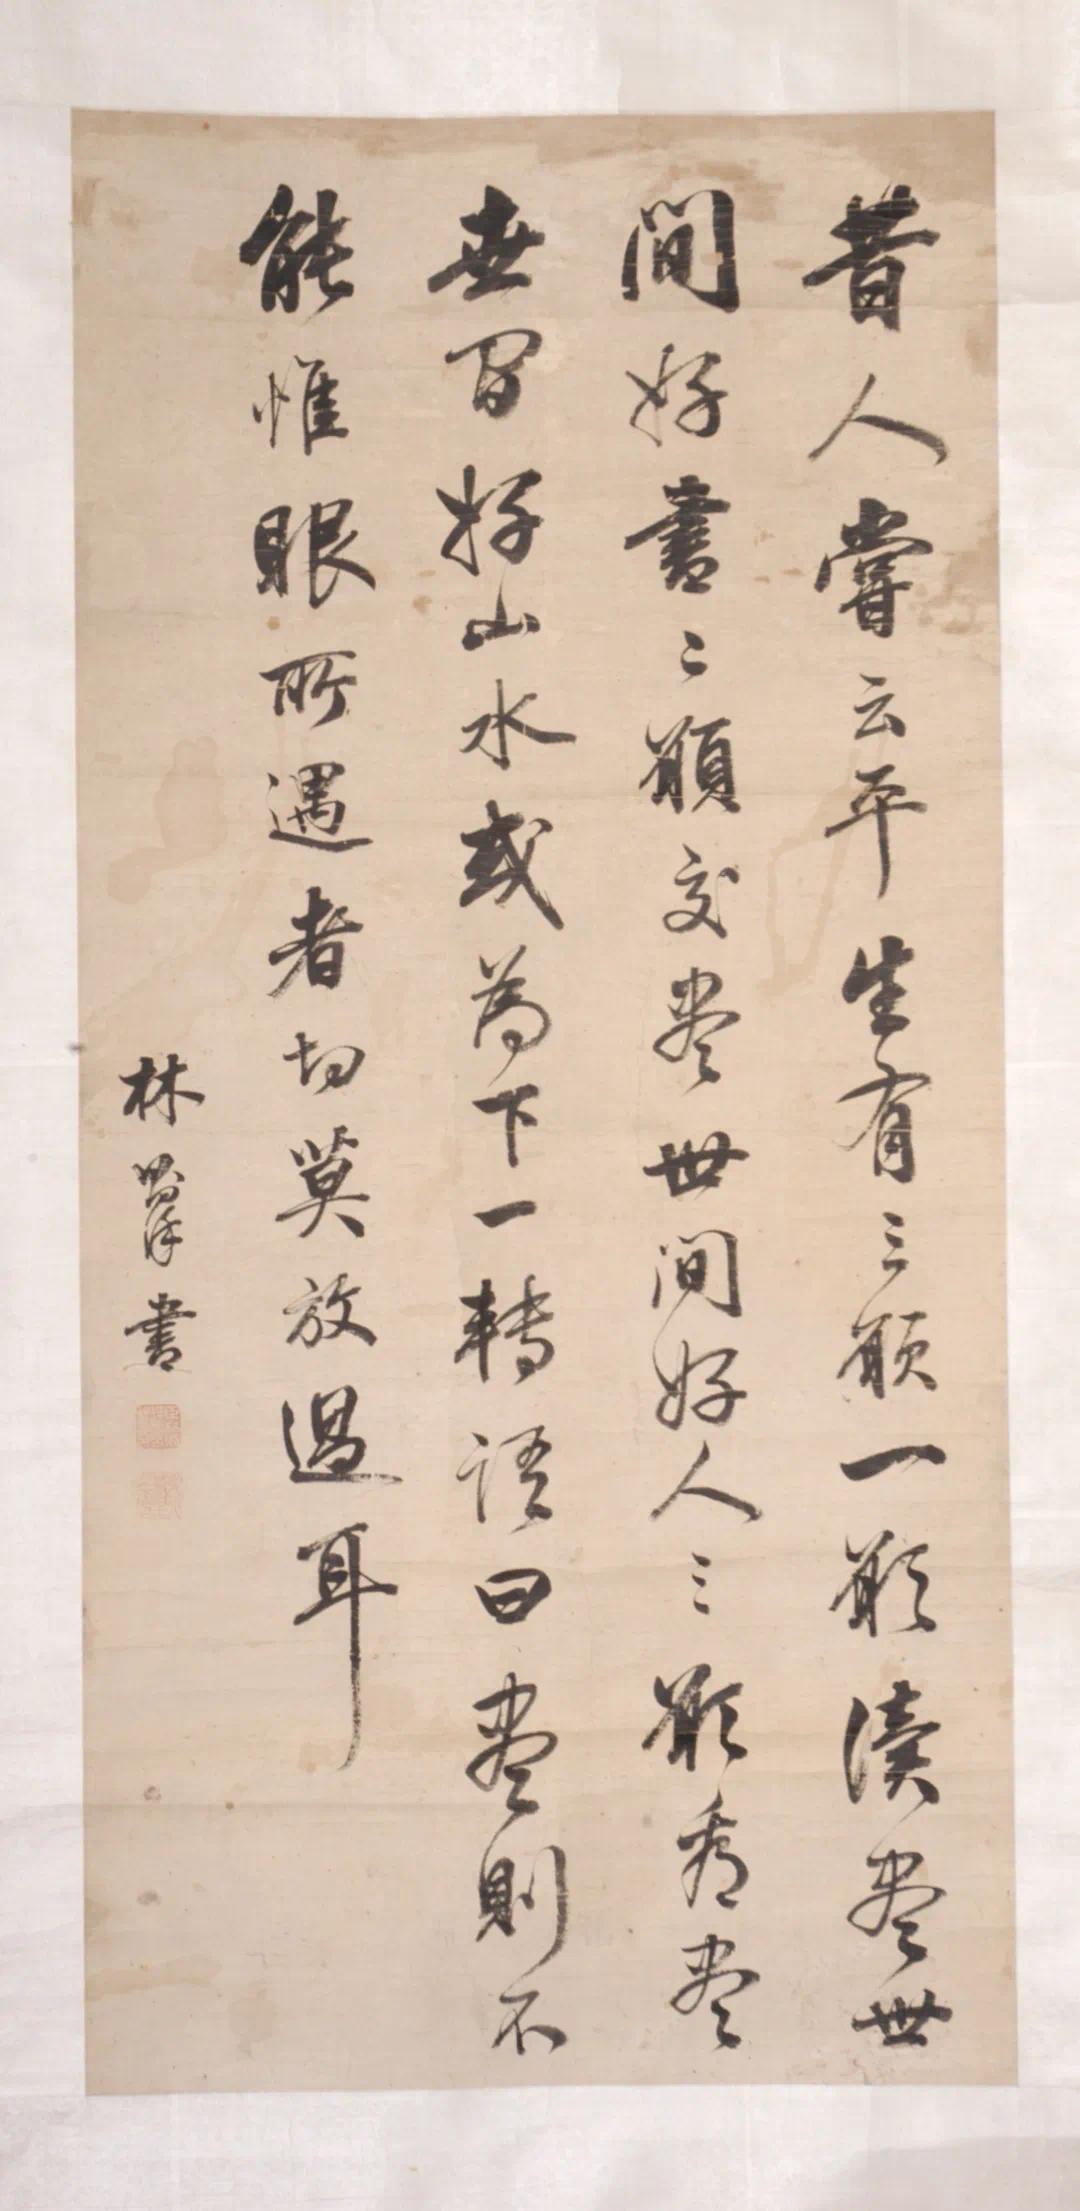 昔人嘗云平生有三願一願讀盡世
間好書二願交盡世間好人三願看盡
世间好山水或為下一轉語曰盡則不
能惟眼所遇者切莫放過耳
林 書